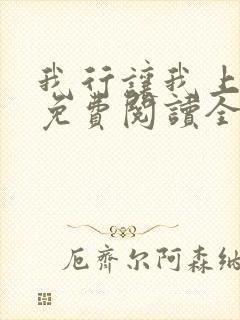 我行讓我上
免費閱讀全
厄齊尔阿森纳